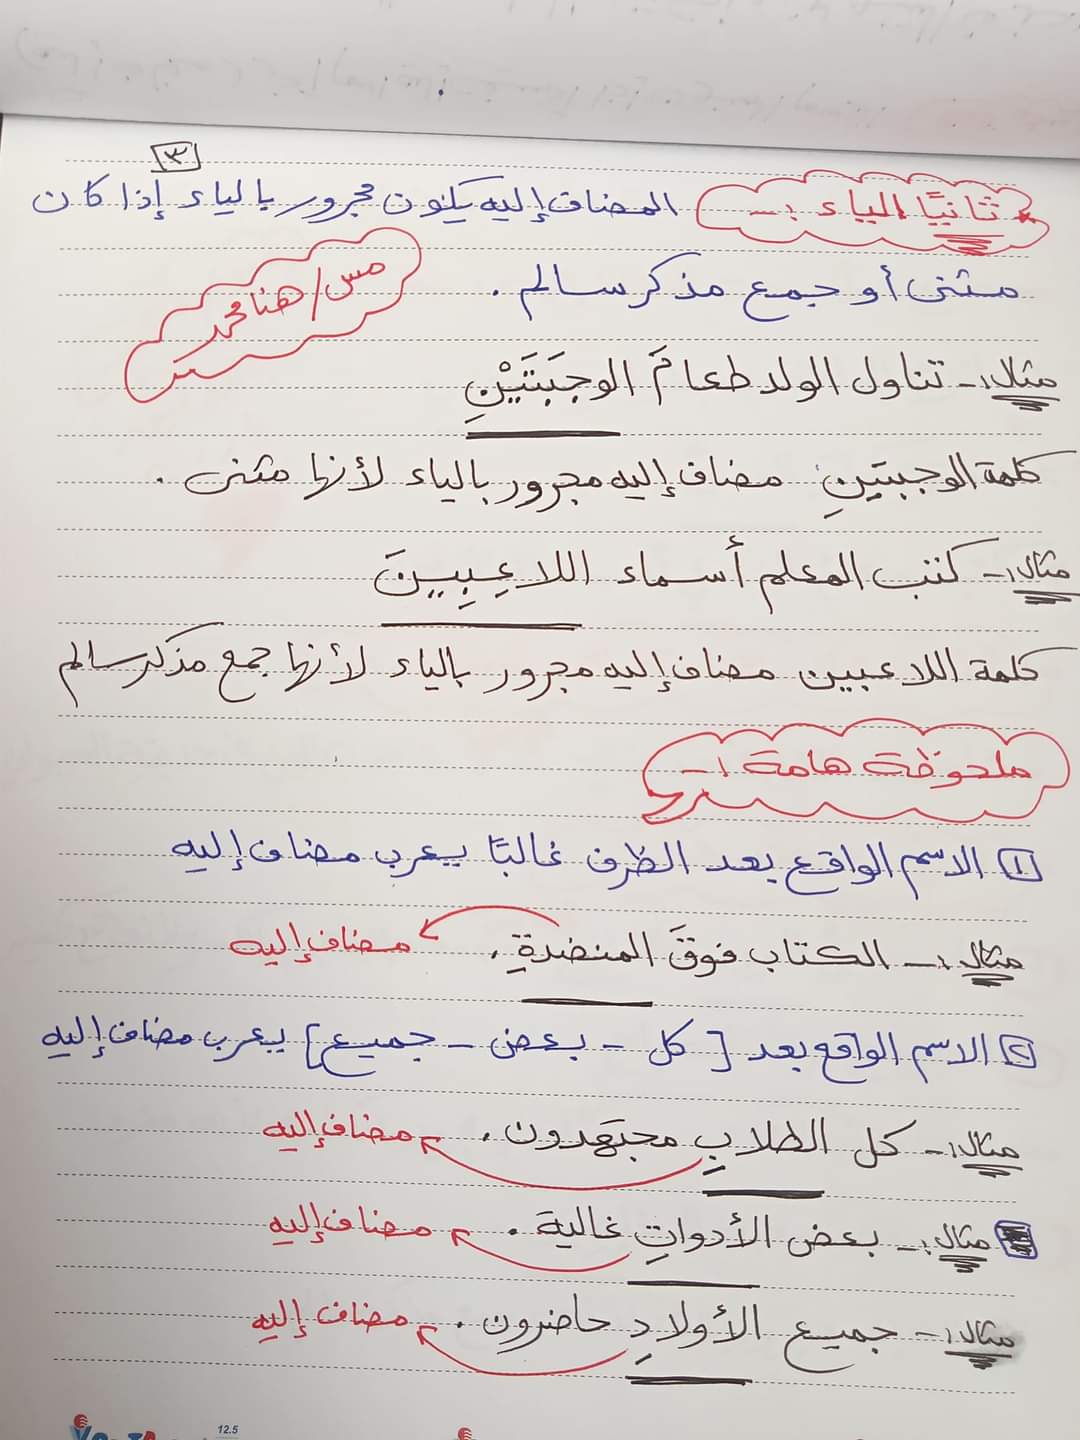 ٣
* ثانيًا الياء :- المضاف إليه يكون مجرور بالياء إذا كان
مثنى أو جمع مذكر سالم .
مس/ هنا محمد
مثال :- تناول الولد طعامَ الوجبَتَيْنِ
كلمة الوجبتينِ : مضاف إليه مجرور بالياء لأنها مثنى .
مثال :- كتب المعلم أسماء اللاعِبِينَ
كلمة اللاعبين مضاف إليه مجرور بالياء لأنها جمع مذكر سالم
ملحوظة هامة :-
١ الاسم الواقع بعد الظرف غالبًا يعرب مضاف إليه
مثال :- الكتاب فوقَ المنضدةِ . مضاف إليه
٢ الاسم الواقع بعد [ كل - بعض - جميع ] يعرب مضاف إليه
مثال :- كل الطلابِ مجتهدون . مضاف إليه
مثال :- بعض الأدواتِ غالية . مضاف إليه
مثال :- جميع الأولادِ حاضرون . مضاف إليه
12.5